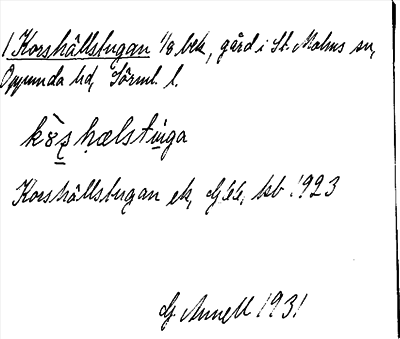 1 Korshällstugan 1/8 bek, gård i St. Malms sn,
Oppunda hd, Sörml. l.
hælstu̲ga
Korshällstugan ek, kb 1923
G Annell 1931